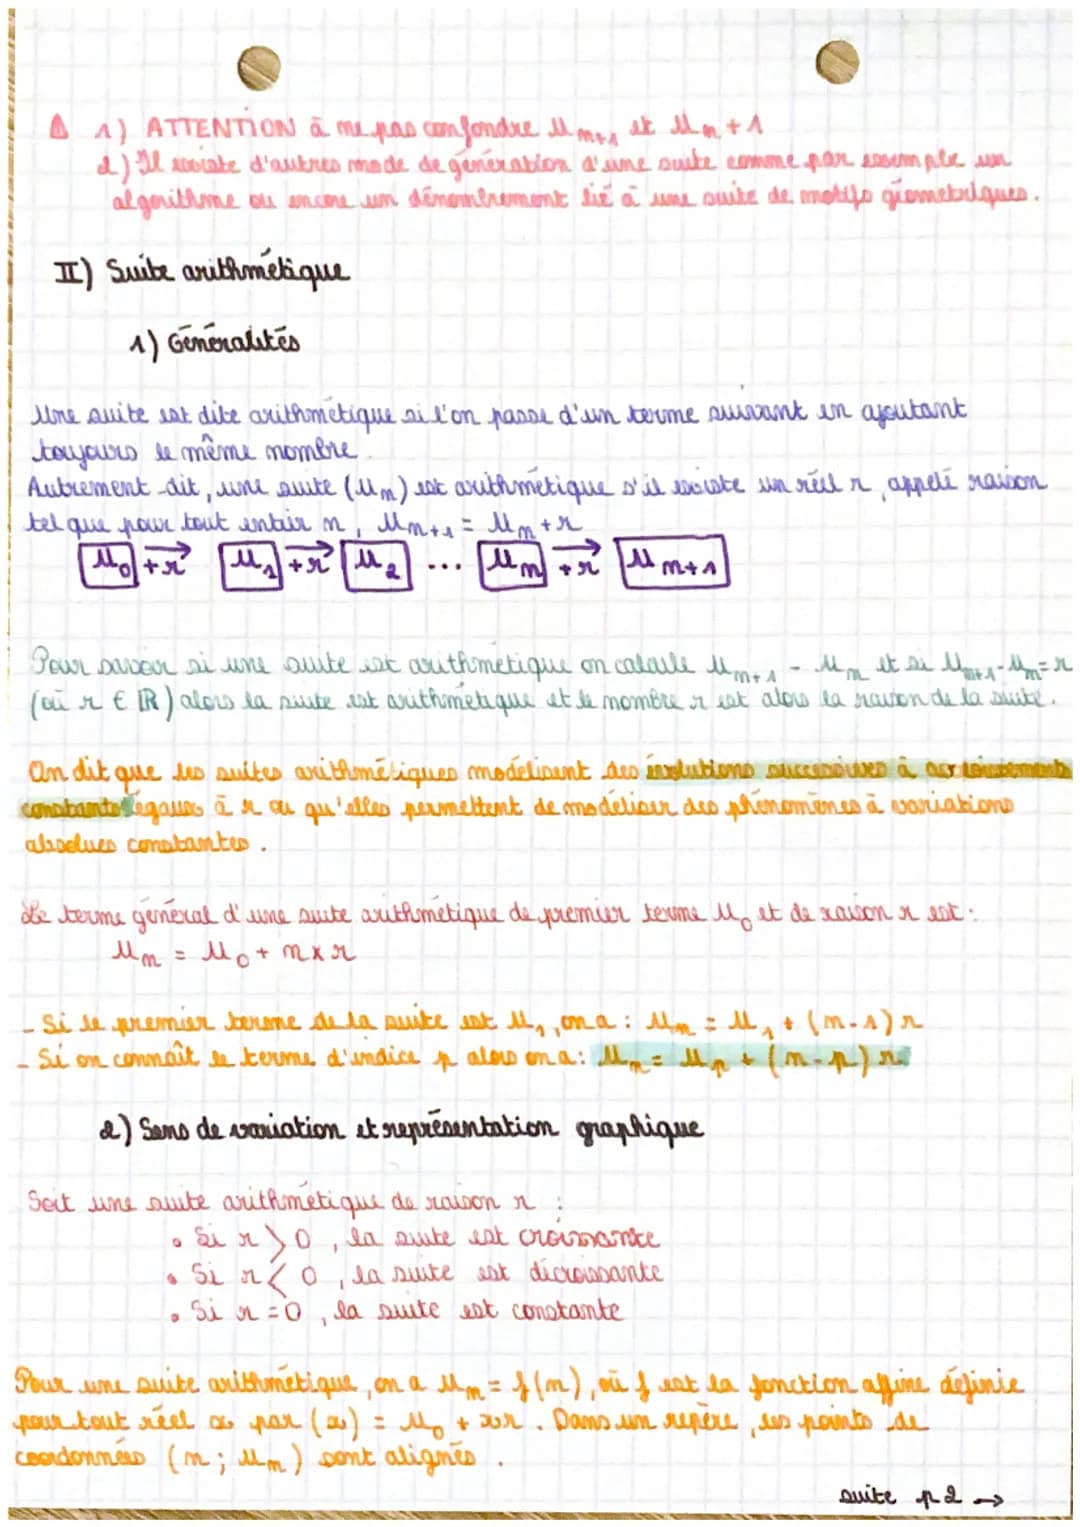 ⚠ 1) ATTENTION à ne pas confondre Un+1 et Un + 1
2) Il existe d'autres mode de génération d'une suite comme par exemple un
algorithme ou encore un dénombrement lié à une suite de motifs géometriques.
II) Suite arithmétique
1) Généralités
Une suite est dite arithmétique si l'on passe d'un terme suivant en ajoutant
toujours le même nombre.
Autrement dit, une suite (Un) est arithmétique s'il existe un réel r, appelé raison
tel que pour tout entier n, Un+1 = Un + r
U0 +r U1 +r U2 ... Un +r Un+1
Pour savoir si une suite est arithmétique on calcule Un+1 - Un et si Un+1 - Un = r
(où r ∈ ℝ) alors la suite est arithmétique et le nombre r est alors la raison de la suite.
On dit que les suites arithmétiques modélisent des évolutions successives à accroissements
constants égaux à r ou qu'elles permettent de modéliser des phénomènes à variations
absolues constantes.
Le terme général d'une suite arithmétique de premier terme U0 et de raison r est :
Un = U0 + n x r
- Si le premier terme de la suite est U1, on a : Un = U1 + (n-1) r
- Si on connaît le terme d'indice p alors on a : Un = Up + (n-p) r.
2) Sens de variation et représentation graphique
Soit une suite arithmétique de raison r :
• Si r > 0, la suite est croissante
• Si r < 0, la suite est décroissante
• Si r = 0, la suite est constante
Pour une suite arithmétique, on a Un = f(n), où f est la fonction affine définie
pour tout réel x par (x) = U0 + xr. Dans un repère, les points de
coordonnées (n; Un) sont alignés.
suite p2 →